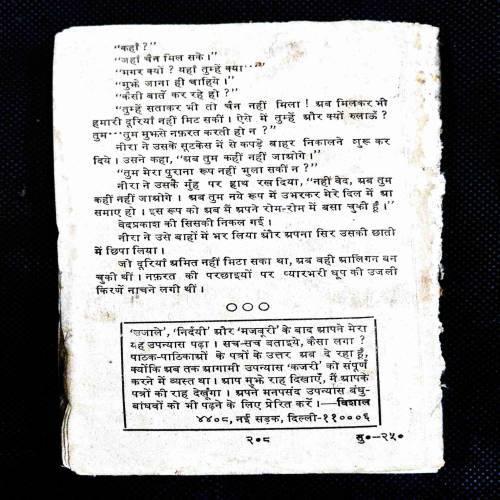 “कहाँ ?”
“जहाँ चैन मिल सके।”
“मगर क्यों ? यहाँ तुम्हें क्या···”
“मुझे जाना ही चाहिये।”
“कैसी बातें कर रहे हो ?”
“तुम्हें सताकर भी तो चैन नहीं मिला ! अब मिलकर भी
हमारी दूरियाँ नहीं मिट सकीं। ऐसे में तुम्हें और क्यों रुलाऊँ ?
तुम···तुम मुझसे नफ़रत करती हो न ?”
नीरा ने उसके सूटकेस में से कपड़े बाहर निकालने शुरू कर
दिये। उसने कहा, “अब तुम कहीं नहीं जाओगे।”
“तुम मेरा पुराना रूप नहीं भूला सकीं न ?”
नीरा ने उसके मुँह पर हाथ रख दिया, “नहीं वेद, अब तुम
कहीं नहीं जाओगे। अब तुम नये रूप में उभरकर मेरे दिल में आ
समाए हो। इस रूप को अब मैं अपने रोम-रोम में बसा चुकी हूँ।”
वेदप्रकाश की सिसकी निकल गई।
नीरा ने उसे बाहों में भर लिया और अपना सिर उसकी छाती
में छिपा लिया।
जो दूरियाँ अमित नहीं मिटा सका था, अब वही आलिंगन बन
चुकी थीं। नफ़रत की परछाइयों पर प्यारभरी धूप की उजली
किरणें नाचने लगी थीं।
○○○
‘उजाले’, ‘निर्दयी’ और ‘मजबूरी’ के बाद आपने मेरा
यह उपन्यास पढ़ा। सच-सच बताइये, कैसा लगा ?
पाठक-पाठिकाओं के पत्रों के उत्तर अब दे रहा हूँ,
क्योंकि अब तक आगामी उपन्यास ‘कजरी’ को संपूर्ण
करने में व्यस्त था। आप मुझे राह दिखाएँ, मैं आपके
पत्रों की राह देखूँगा। अपने मनपसंद उपन्यास बंधु-
बांधवों को भी पढ़ने के लिए प्रेरित करें।—विशाल
४४०८, नई सड़क, दिल्ली-११०००६
२०८ नु०–२५०